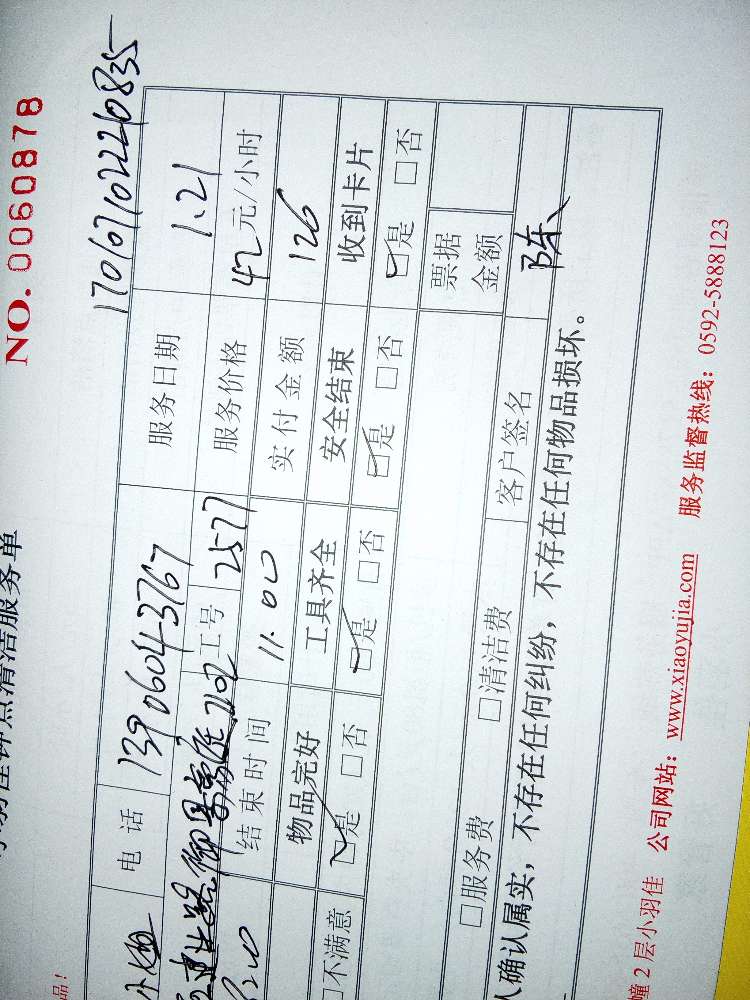 NO. 0060878
17016710222 0835
品！
羽佳钟点清洁服务单
电话 139 6043767 服务日期 1.21
2102 工号 2577 服务价格 42元/小时
结束时间 11.00 实付金额 126
物品完好 工具齐全 安全结束 收到卡片
□不满意 ☑是 □否 ☑是 □否 ☑是 □否 ☑是 □否
票据金额
□服务费 □清洁费 客户签名 陈
人确认属实，不存在任何纠纷，不存在任何物品损坏。
幢2层小羽佳 公司网站：www.xiaoyujia.com 服务监督热线：0592-5888123